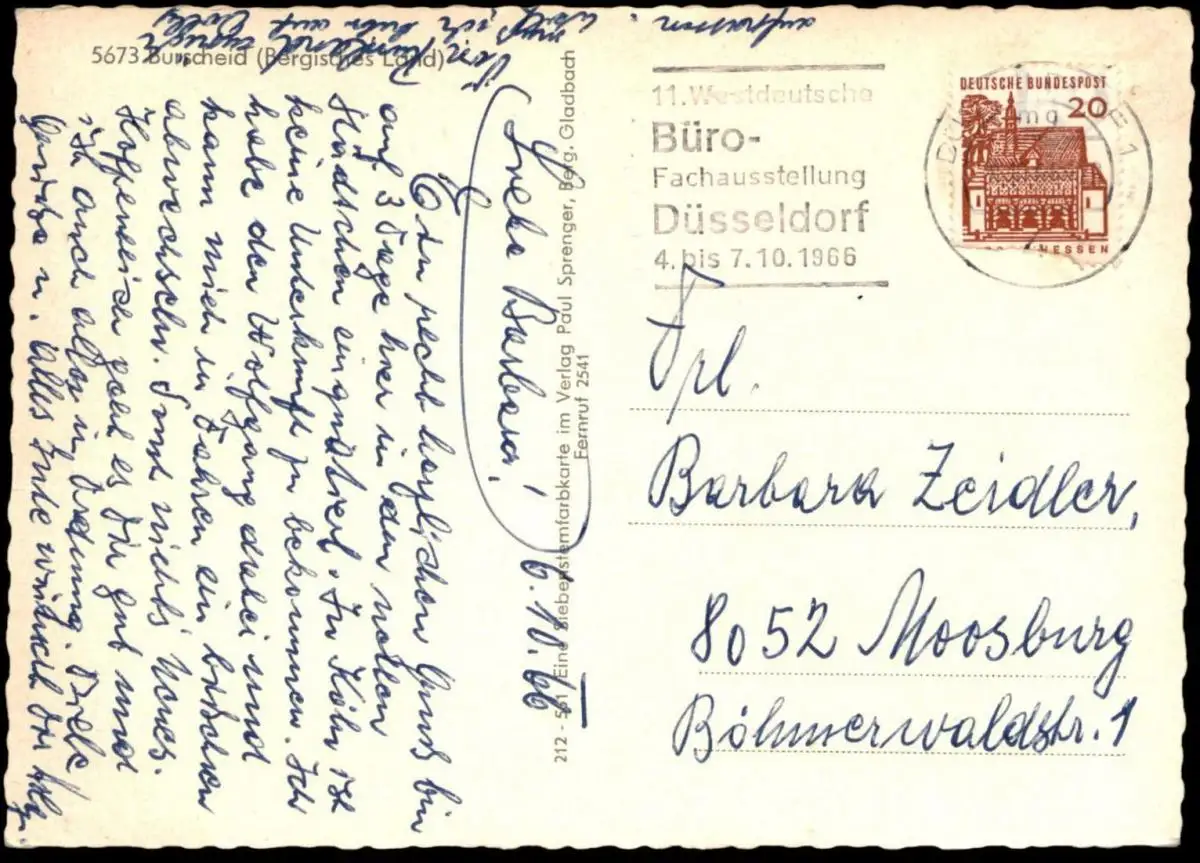 5673 Burscheid (Bergisches Land)
Liebe Barbara!
6.10.66
Ein recht herzlichen Gruß bin
auf 3 Tage hier in den
Städtchen einquatiert. In Köln ist
keine Underkunft zu bekommen. Ich
habe den Wolfgang dabei und
kann mich in Fahren ein bischen
abwechseln. Sonst nichts Neues.
Hoffendlich geht es Dir gut und
ist auch alles in Ordnung. Viele
Grüße u. alles Gute wünscht Dir
muß ich
auf
212 - 561 Eine Siebensternfarbkarte im Verlag Paul Sprenger, Berg. Gladbach
Fernruf 2541
11. Westdeutsche
Büro-
Fachausstellung
Düsseldorf
4. bis 7.10.1966
DEUTSCHE BUNDESPOST
20
ESSEN
Frl.
Barbara Zeidler,
8052 Moosburg
Böhmerwaldstr. 1